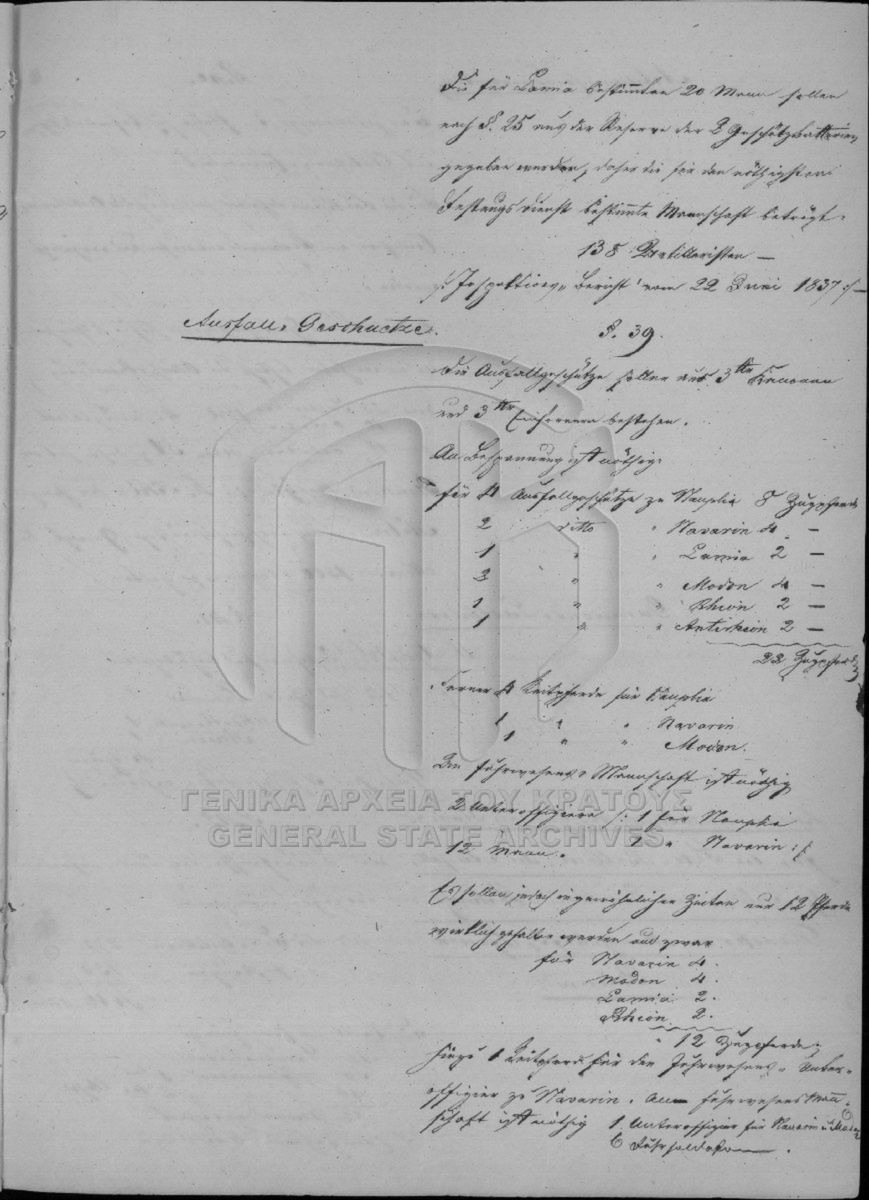 Die für Lamia bestimmten 20 Mann sollen
nach §. 25 aus der Reserve der 2 Geschützbatterien
gegeben werden, daher die für den nöthigsten
Festungsdienst bestimmte Mannschaft beträgt:
138 Artilleristen —
/: Inspektions-Bericht vom 22 Juni 1837 :/ —
Ausfall-Geschuetze.
§. 39.
Die Ausfallgeschütze sollen aus 3 Kanonen
und 3 Einhörnern bestehen.
An Bespannung ist nöthig:
für 4 Ausfallgeschütze zu Nauplia 8 Zugpferde
2 ditto " Navarin 4 —
1 " " Lamia 2 —
2 " " Modon 4 —
1 " " Rhion 2 —
1 " " Antirhion 2 —
22 Zugpferde
Ferner 4 Reitpferde für Nauplia
1 " " Navarin
1 " " Modon.
An Fuhrwesens-Mannschaft ist nöthig
2 Unteroffiziere /: 1 für Nauplia
1 " Navarin :/
12 Mann.
Es sollen jedoch in gewöhnlicher Zeiten nur 12 Pferde
wirklich gehalten werden und zwar
für Navarin 4.
Modon 4.
Lamia 2.
Rhion 2.
" 12 Zugpferde;
hiezu 1 Reitpferd für den Fuhrwesens-Unter-
offizier zu Navarin. An Fuhrwesens Mann-
schaft ist nöthig 1 Unteroffizier für Navarin u. Modon
6 Fuhrsoldaten.
ΓΕΝΙΚΑ ΑΡΧΕΙΑ ΤΟΥ ΚΡΑΤΟΥΣ
GENERAL STATE ARCHIVES